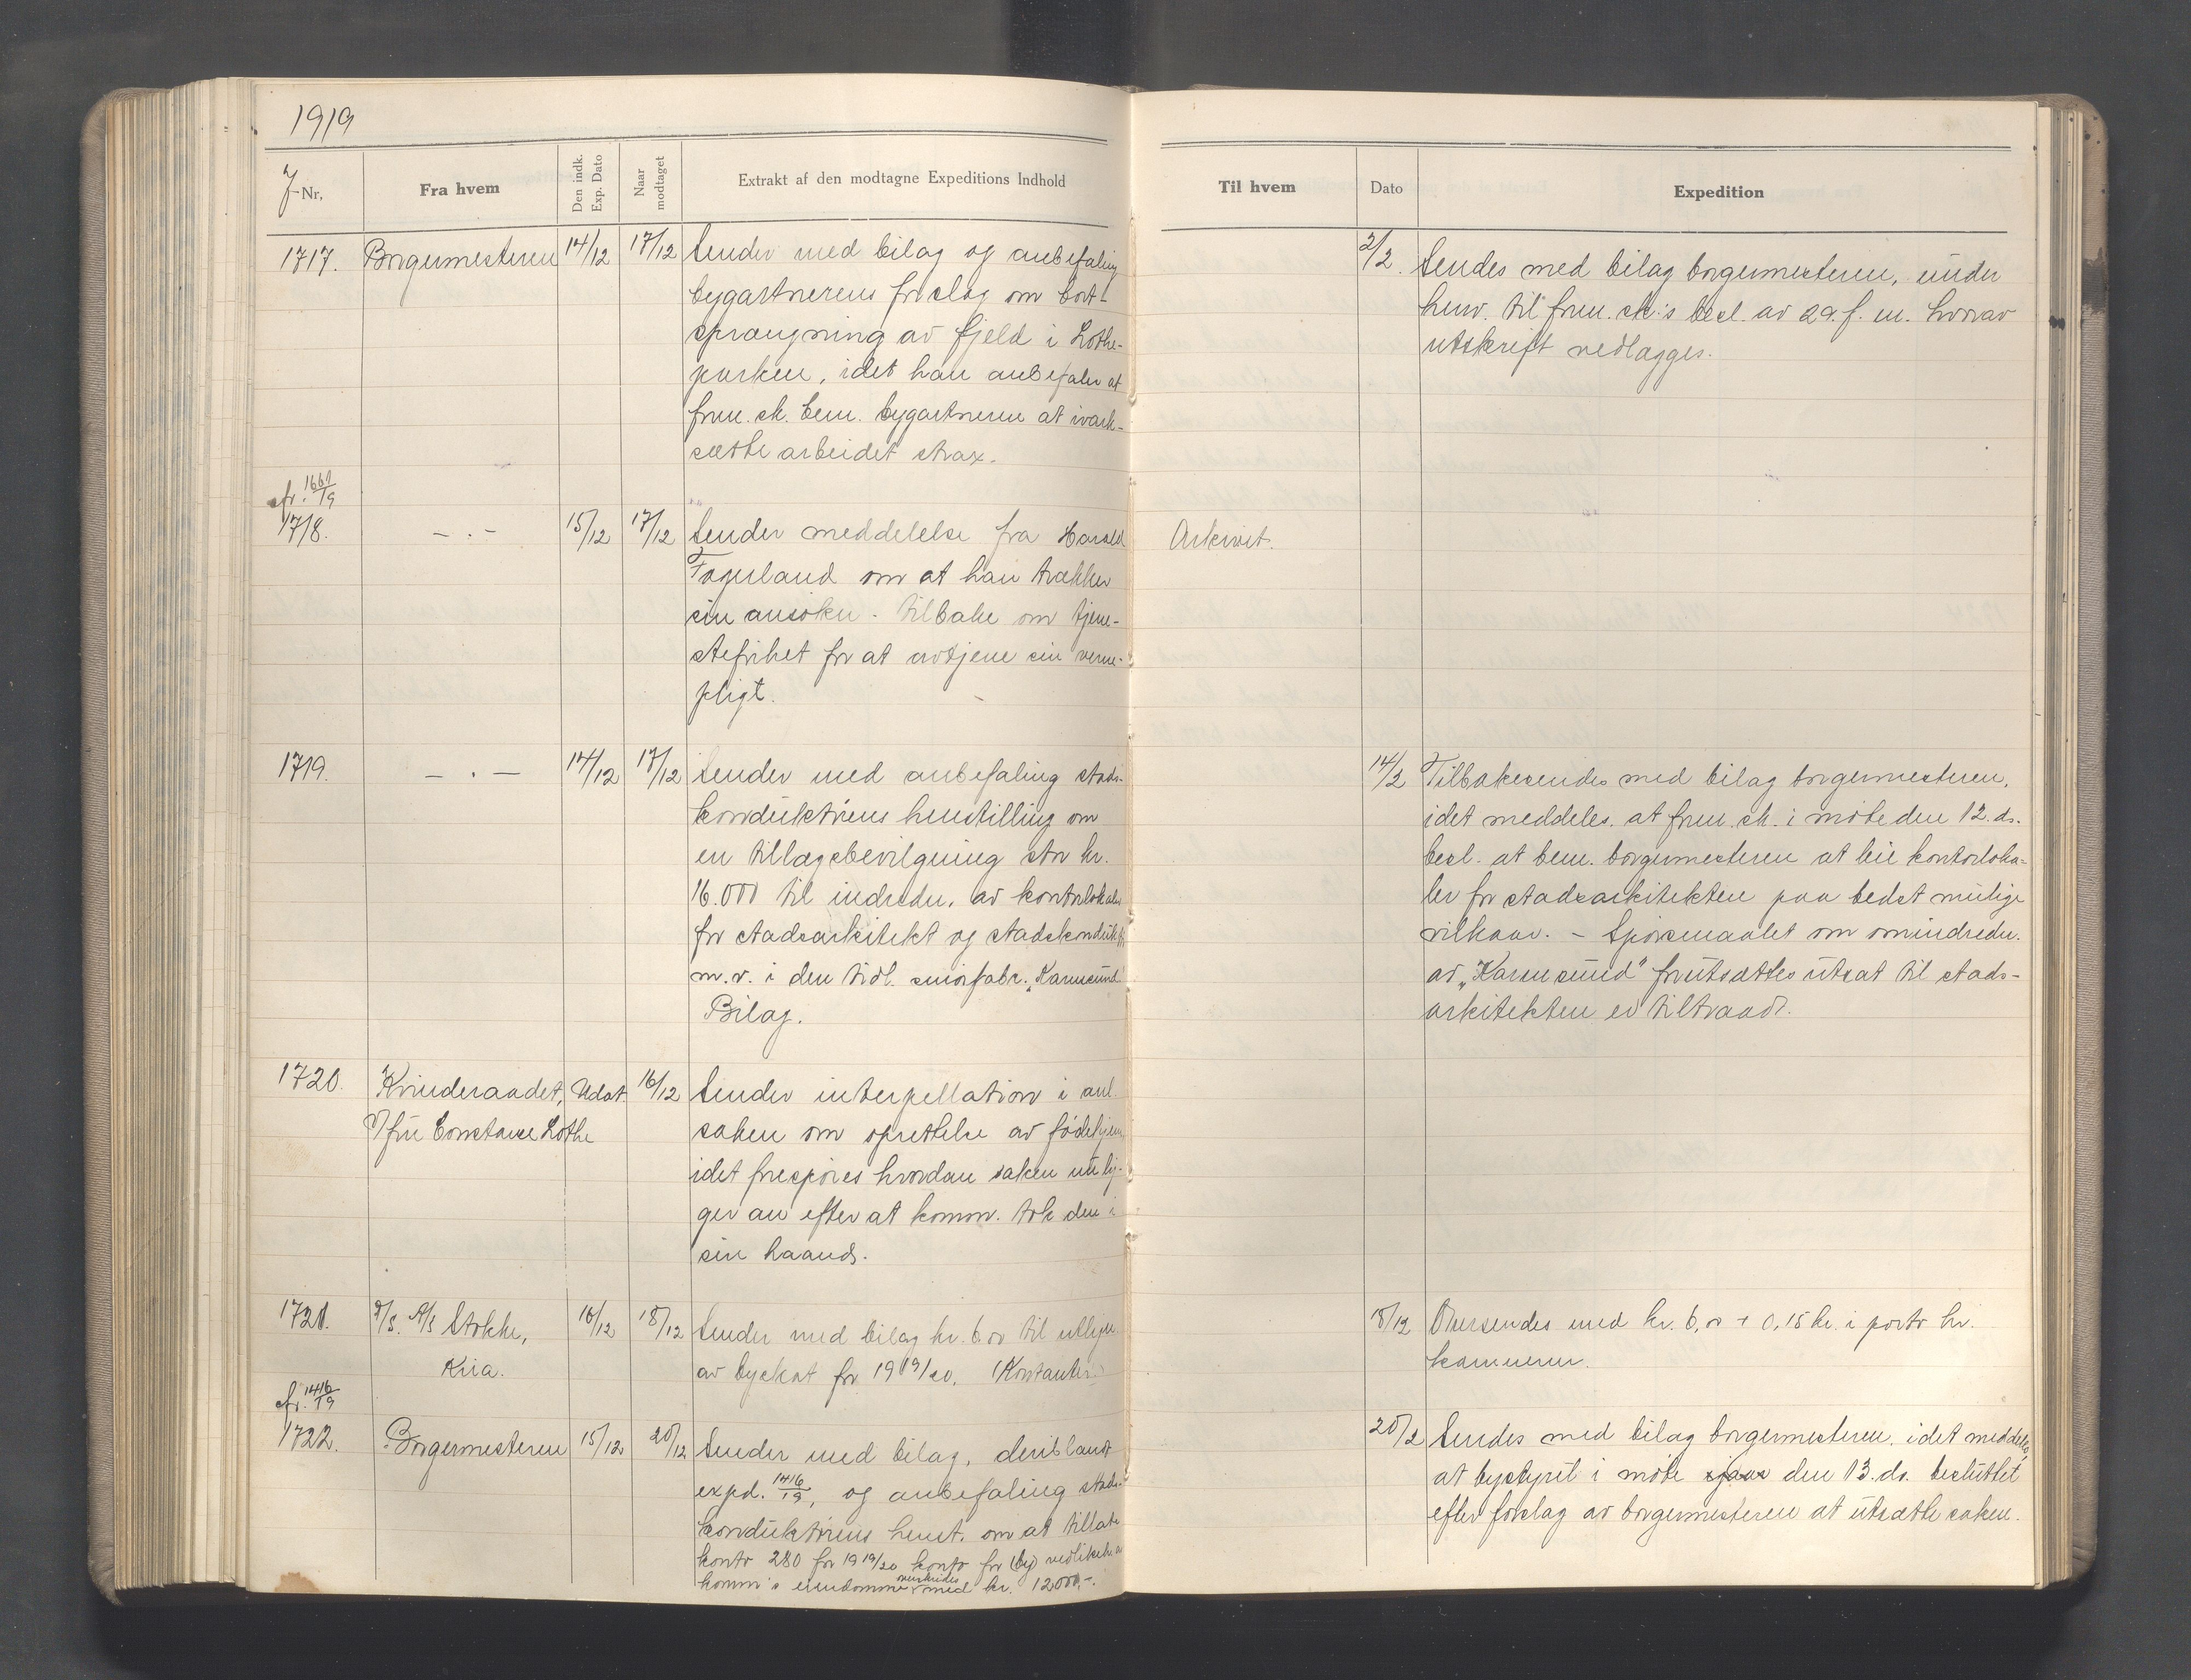 1919
J.-Nr. Fra hvem Den indk. Exp. Dato Naar modtaget Extrakt af den modtagne Expeditions Indhold Til hvem Dato Expedition
1717. Borgermesteren 14/12 17/12 Sender med bilag og anbefaling
bygartnerens forslag om bort-
sprængning av fjeld i Lothe-
parken, idet han anbefaler at
form.sk. bem. bygartneren at iverk-
sætte arbeidet strax.
2/2. Sendes med bilag borgermesteren, under
henv. til form.sk.'s besl. av 29. f. m. hvorav
utskrift vedlægges.
cfr. 1661/19
1718. — . — 15/12 17/12 Sender meddelelse fra Harald
Fagerland om at han trækker
sin ansøkn. tilbake om tjene-
stefrihet for at avtjene sin verne-
pligt.
Arkivet.
1719. — . — 14/12 17/12 Sender med anbefaling stads-
konduktørens henstilling om
en tillægsbevilgning stor kr.
16.000 til indredn. av kontorlokaler
for stadsarkitekt og stadskondukt.
m.v. i den tidl. smørfabr. „Karmsund"
Bilag.
14/2 Tilbakesendes med bilag borgermesteren,
idet meddeles, at form.sk. i møte den 12. ds.
besl. at bem. borgermesteren at leie kontorloka-
ler for stadsarkitekten paa bedst mulige
vilkaar. – Spørsmaalet om omindredn.
av „Karmsund" forutsættes utsat til stads-
arkitekten er tiltraadt.
1720. Kvinderaadet, Udat. 16/12 Sender interpellation i anl.
v/ fru Constance Lothe saken om oprettelse av fødehjem,
idet forespørres hvordan saken nu lig-
ger an efter at komm. tok den i
sin haand.
1721. A/S Stokke, 16/12 18/12 Sender med bilag kr. 6.00 til utlign.
Kria. av byskat for 1919/20. (Kontanter)
18/12 Oversendes med kr. 6,00 + 0,15 kr. i porto hr.
kæmneren.
cfr. 1416/19
1722. Borgermesteren 15/12 20/12 Sender med bilag, deriblandt
expd. 1416/19, og anbefaling stads-
konduktørens henst. om at tillate
konto 280 for 1919/20 konto for (by) vedlikeh. av
komm's eiendomme overskrides med kr. 12000,-.
20/2 Sendes med bilag borgermesteren, idet meddeles,
at bystyret i møte den 13. ds. besluttet
efter forslag av borgermesteren at utsætte saken.